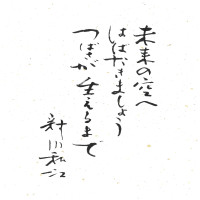 未来の空へ
はばたきましょう
つばさが生えるまで
新川和江